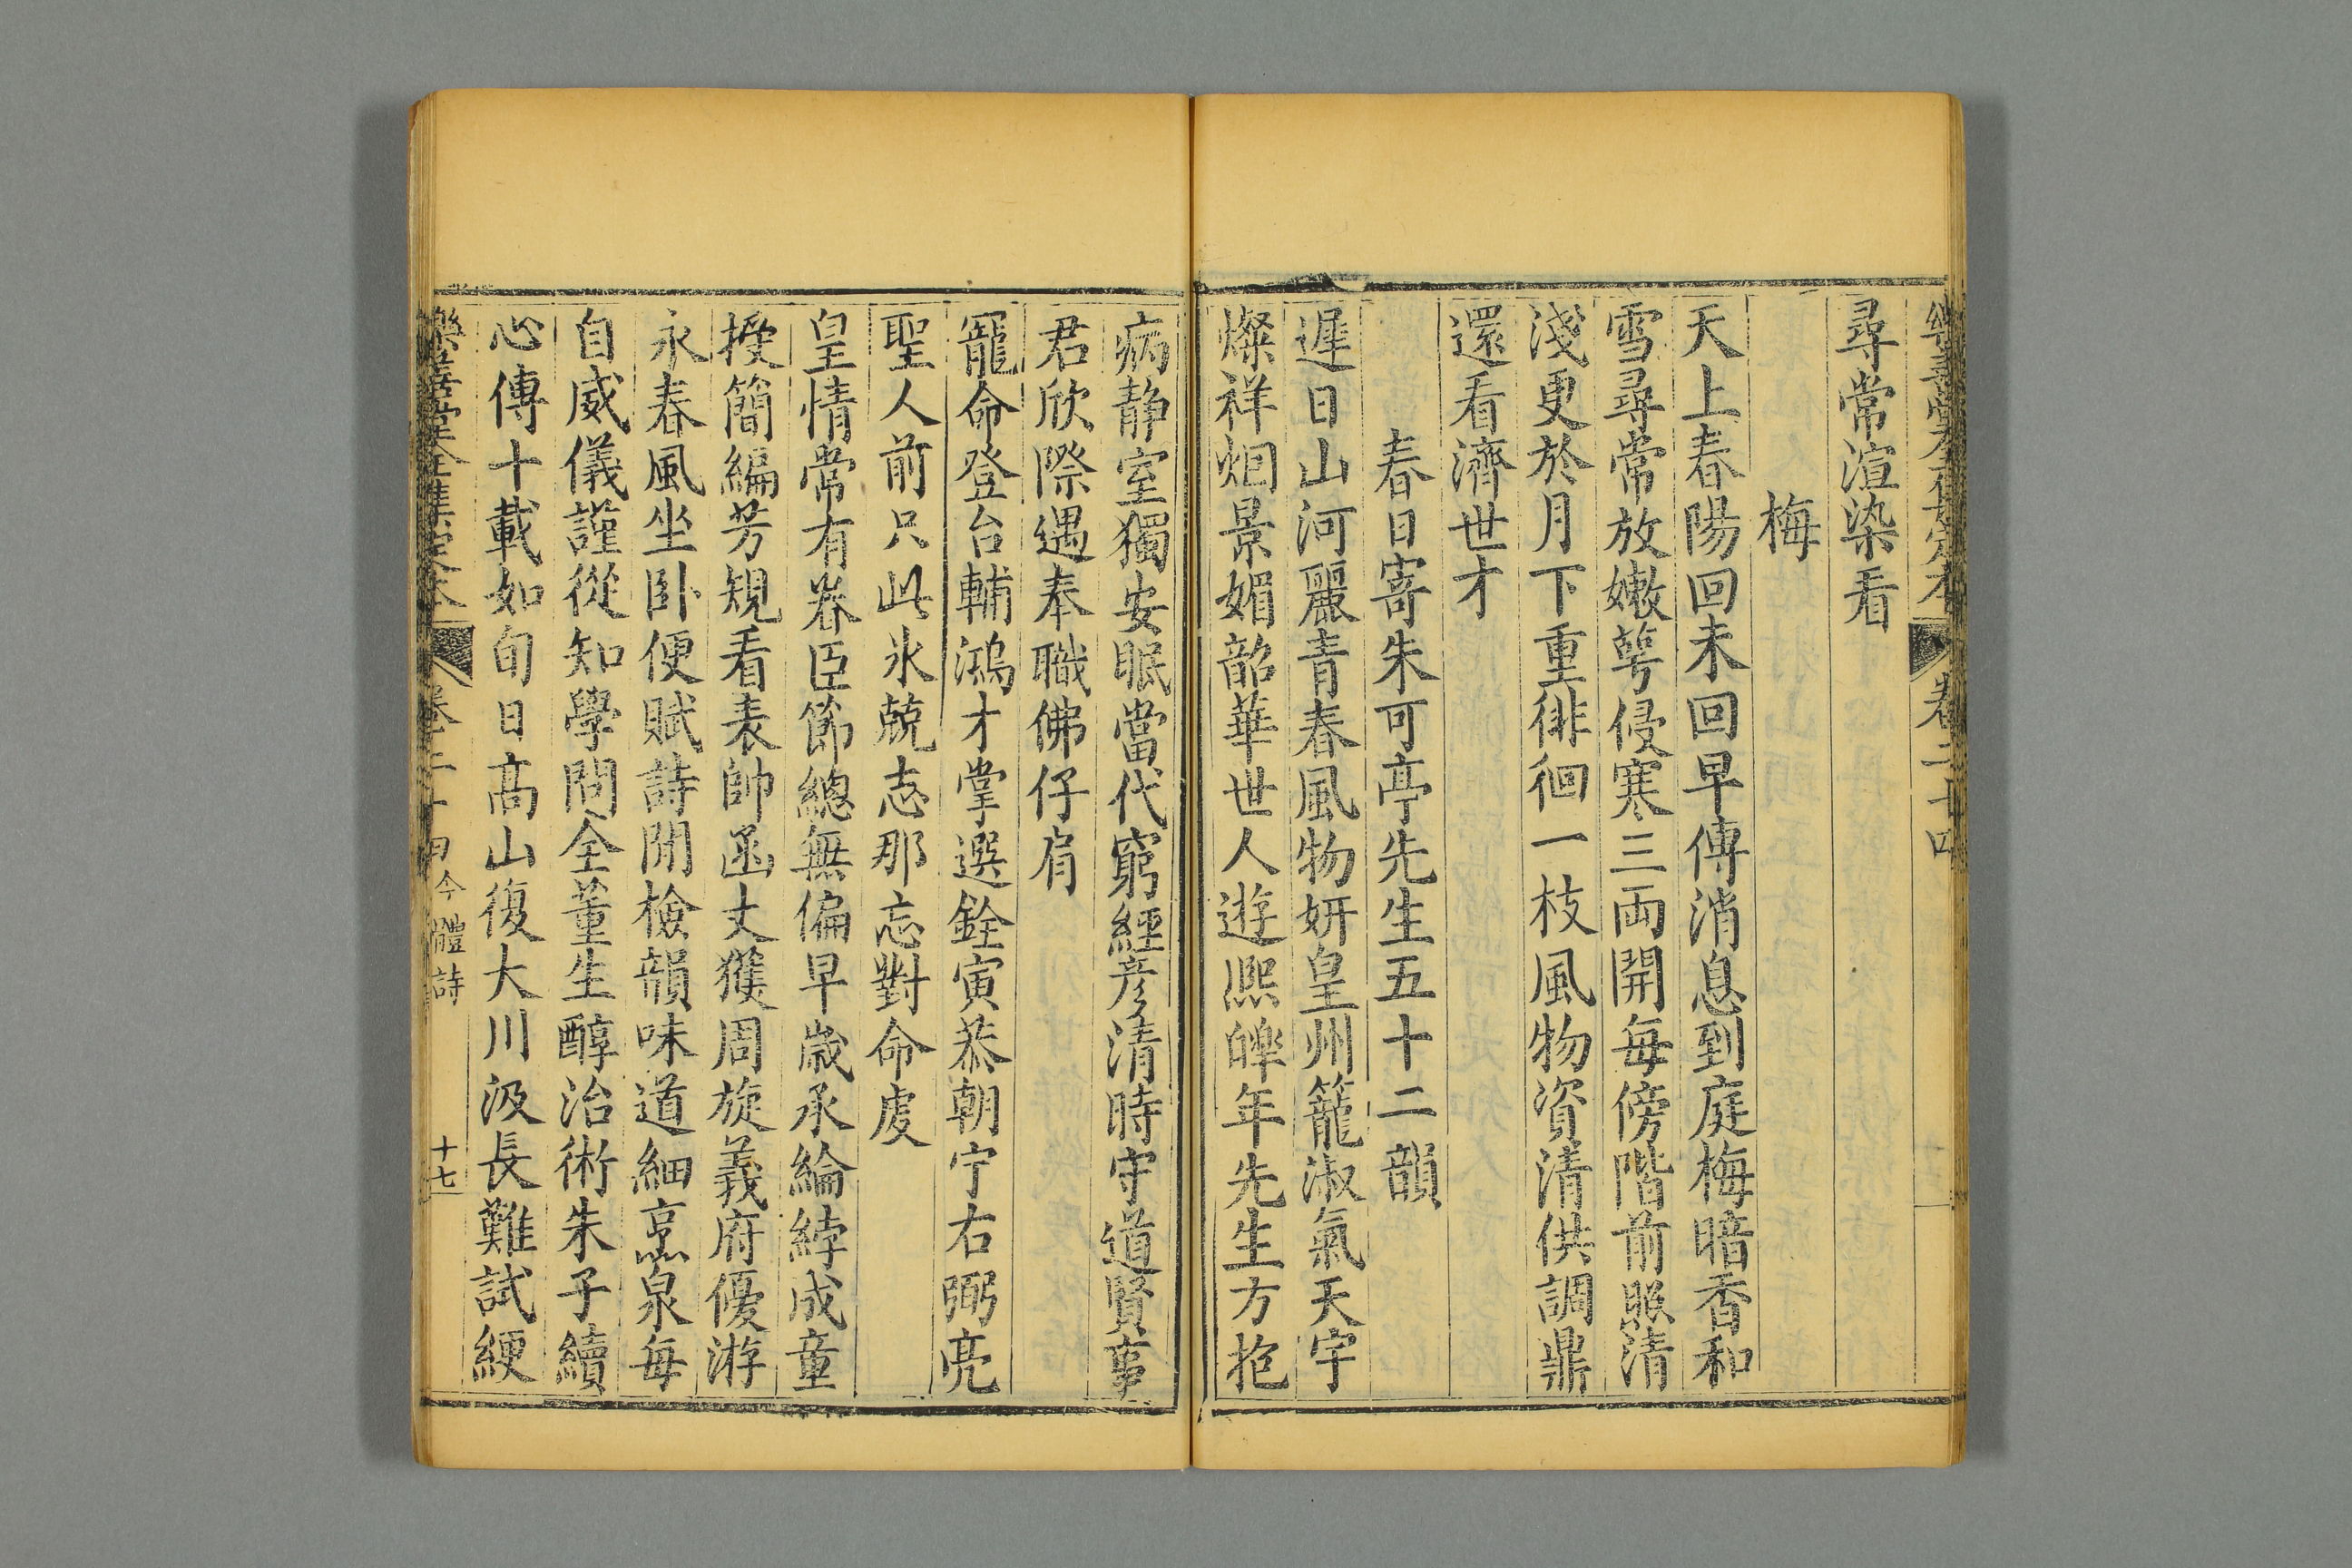 樂善堂全集定本 卷二十四
尋常渲染看
梅
天上春陽回未回早傳消息到庭梅暗香和
雪尋常放嫩萼侵寒三両開每傍階前照清
淺更於月下重徘徊一枝風物資清供調鼎
還看濟世才
春日寄朱可亭先生五十二韻
遲日山河麗青春風物妍皇州籠淑氣天宇
燦祥烟景媚韶華世人遊熈皥年先生方抱
病静室獨安眠當代窮經彥清時守道賢事
君欣際遇奉職佛仔肩
寵命登台輔鴻才掌選銓寅恭朝宁右弼亮
聖人前只此氷兢志那忘對命虔
皇情常有眷臣節總無偏早歲承綸綍成童
授簡編芳規看表帥函丈獲周旋義府優游
永春風坐卧便賦詩閒檢韻味道細烹泉每
自威儀謹從知學問全董生醇治術朱子續
心傳十載如旬日高山復大川汲長難試綆
樂善堂全集定本 卷二十四 今體詩 十七